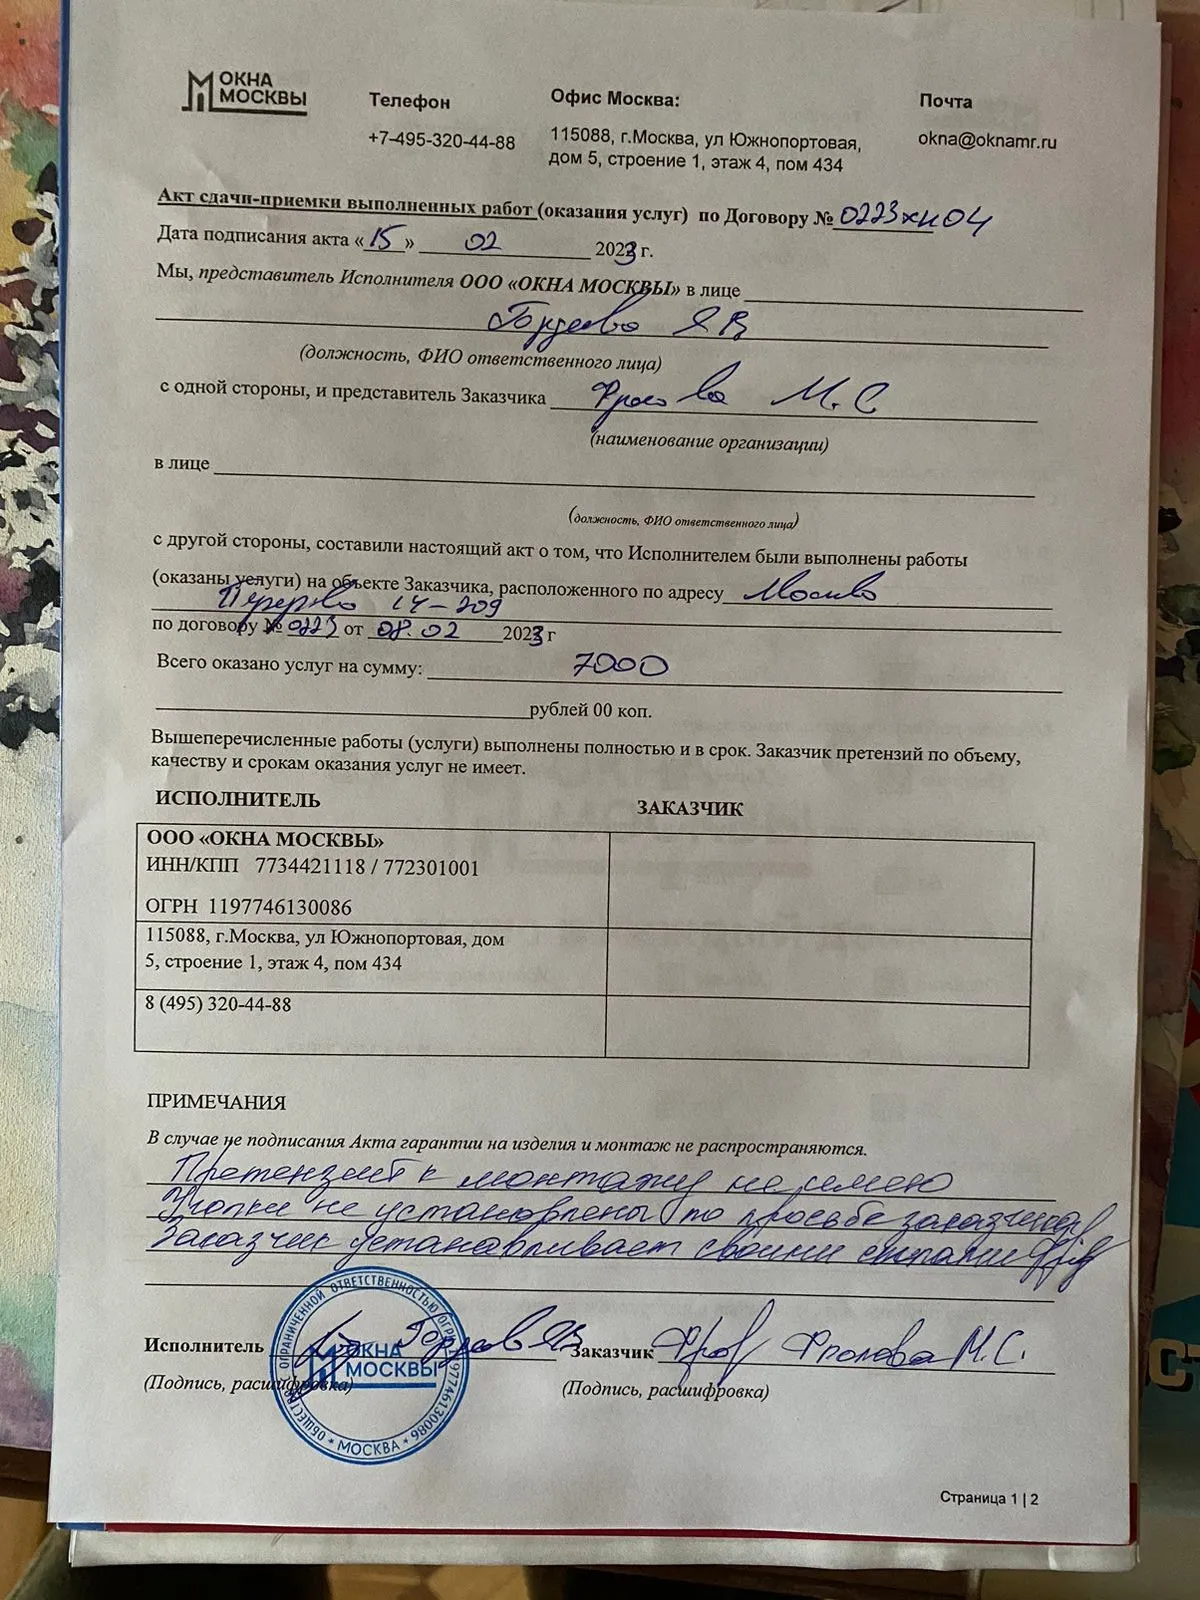 ОКНА
МОСКВЫ
Телефон
+7-495-320-44-88
Офис Москва:
115088, г.Москва, ул Южнопортовая,
дом 5, строение 1, этаж 4, пом 434
Почта
okna@oknamr.ru
Акт сдачи-приемки выполненных работ (оказания услуг) по Договору № 0223хк04
Дата подписания акта «15» 02 2023 г.
Мы, представитель Исполнителя ООО «ОКНА МОСКВЫ» в лице
ЯВ
(должность, ФИО ответственного лица)
с одной стороны, и представитель Заказчика Фролова М.С
(наименование организации)
в лице
(должность, ФИО ответственного лица)
с другой стороны, составили настоящий акт о том, что Исполнителем были выполнены работы
(оказаны услуги) на объекте Заказчика, расположенного по адресу Москва
Перерва 14-209
по договору № 0223 от 08.02 2023 г
Всего оказано услуг на сумму: 7000
рублей 00 коп.
Вышеперечисленные работы (услуги) выполнены полностью и в срок. Заказчик претензий по объему,
качеству и срокам оказания услуг не имеет.
ИСПОЛНИТЕЛЬ
ЗАКАЗЧИК
ООО «ОКНА МОСКВЫ»
ИНН/КПП 7734421118 / 772301001
ОГРН 1197746130086
115088, г.Москва, ул Южнопортовая, дом
5, строение 1, этаж 4, пом 434
8 (495) 320-44-88
ПРИМЕЧАНИЯ
В случае не подписания Акта гарантии на изделия и монтаж не распространяются.
Претензий к монтажу не имею
Уголки не установлены по просьбе заказчица
Заказчик устанавливает своими силами
Исполнитель ЯВ Заказчик Фролова М.С.
(Подпись, расшифровка) (Подпись, расшифровка)
ОКНА
МОСКВЫ
МОСКВА
Страница 1 | 2